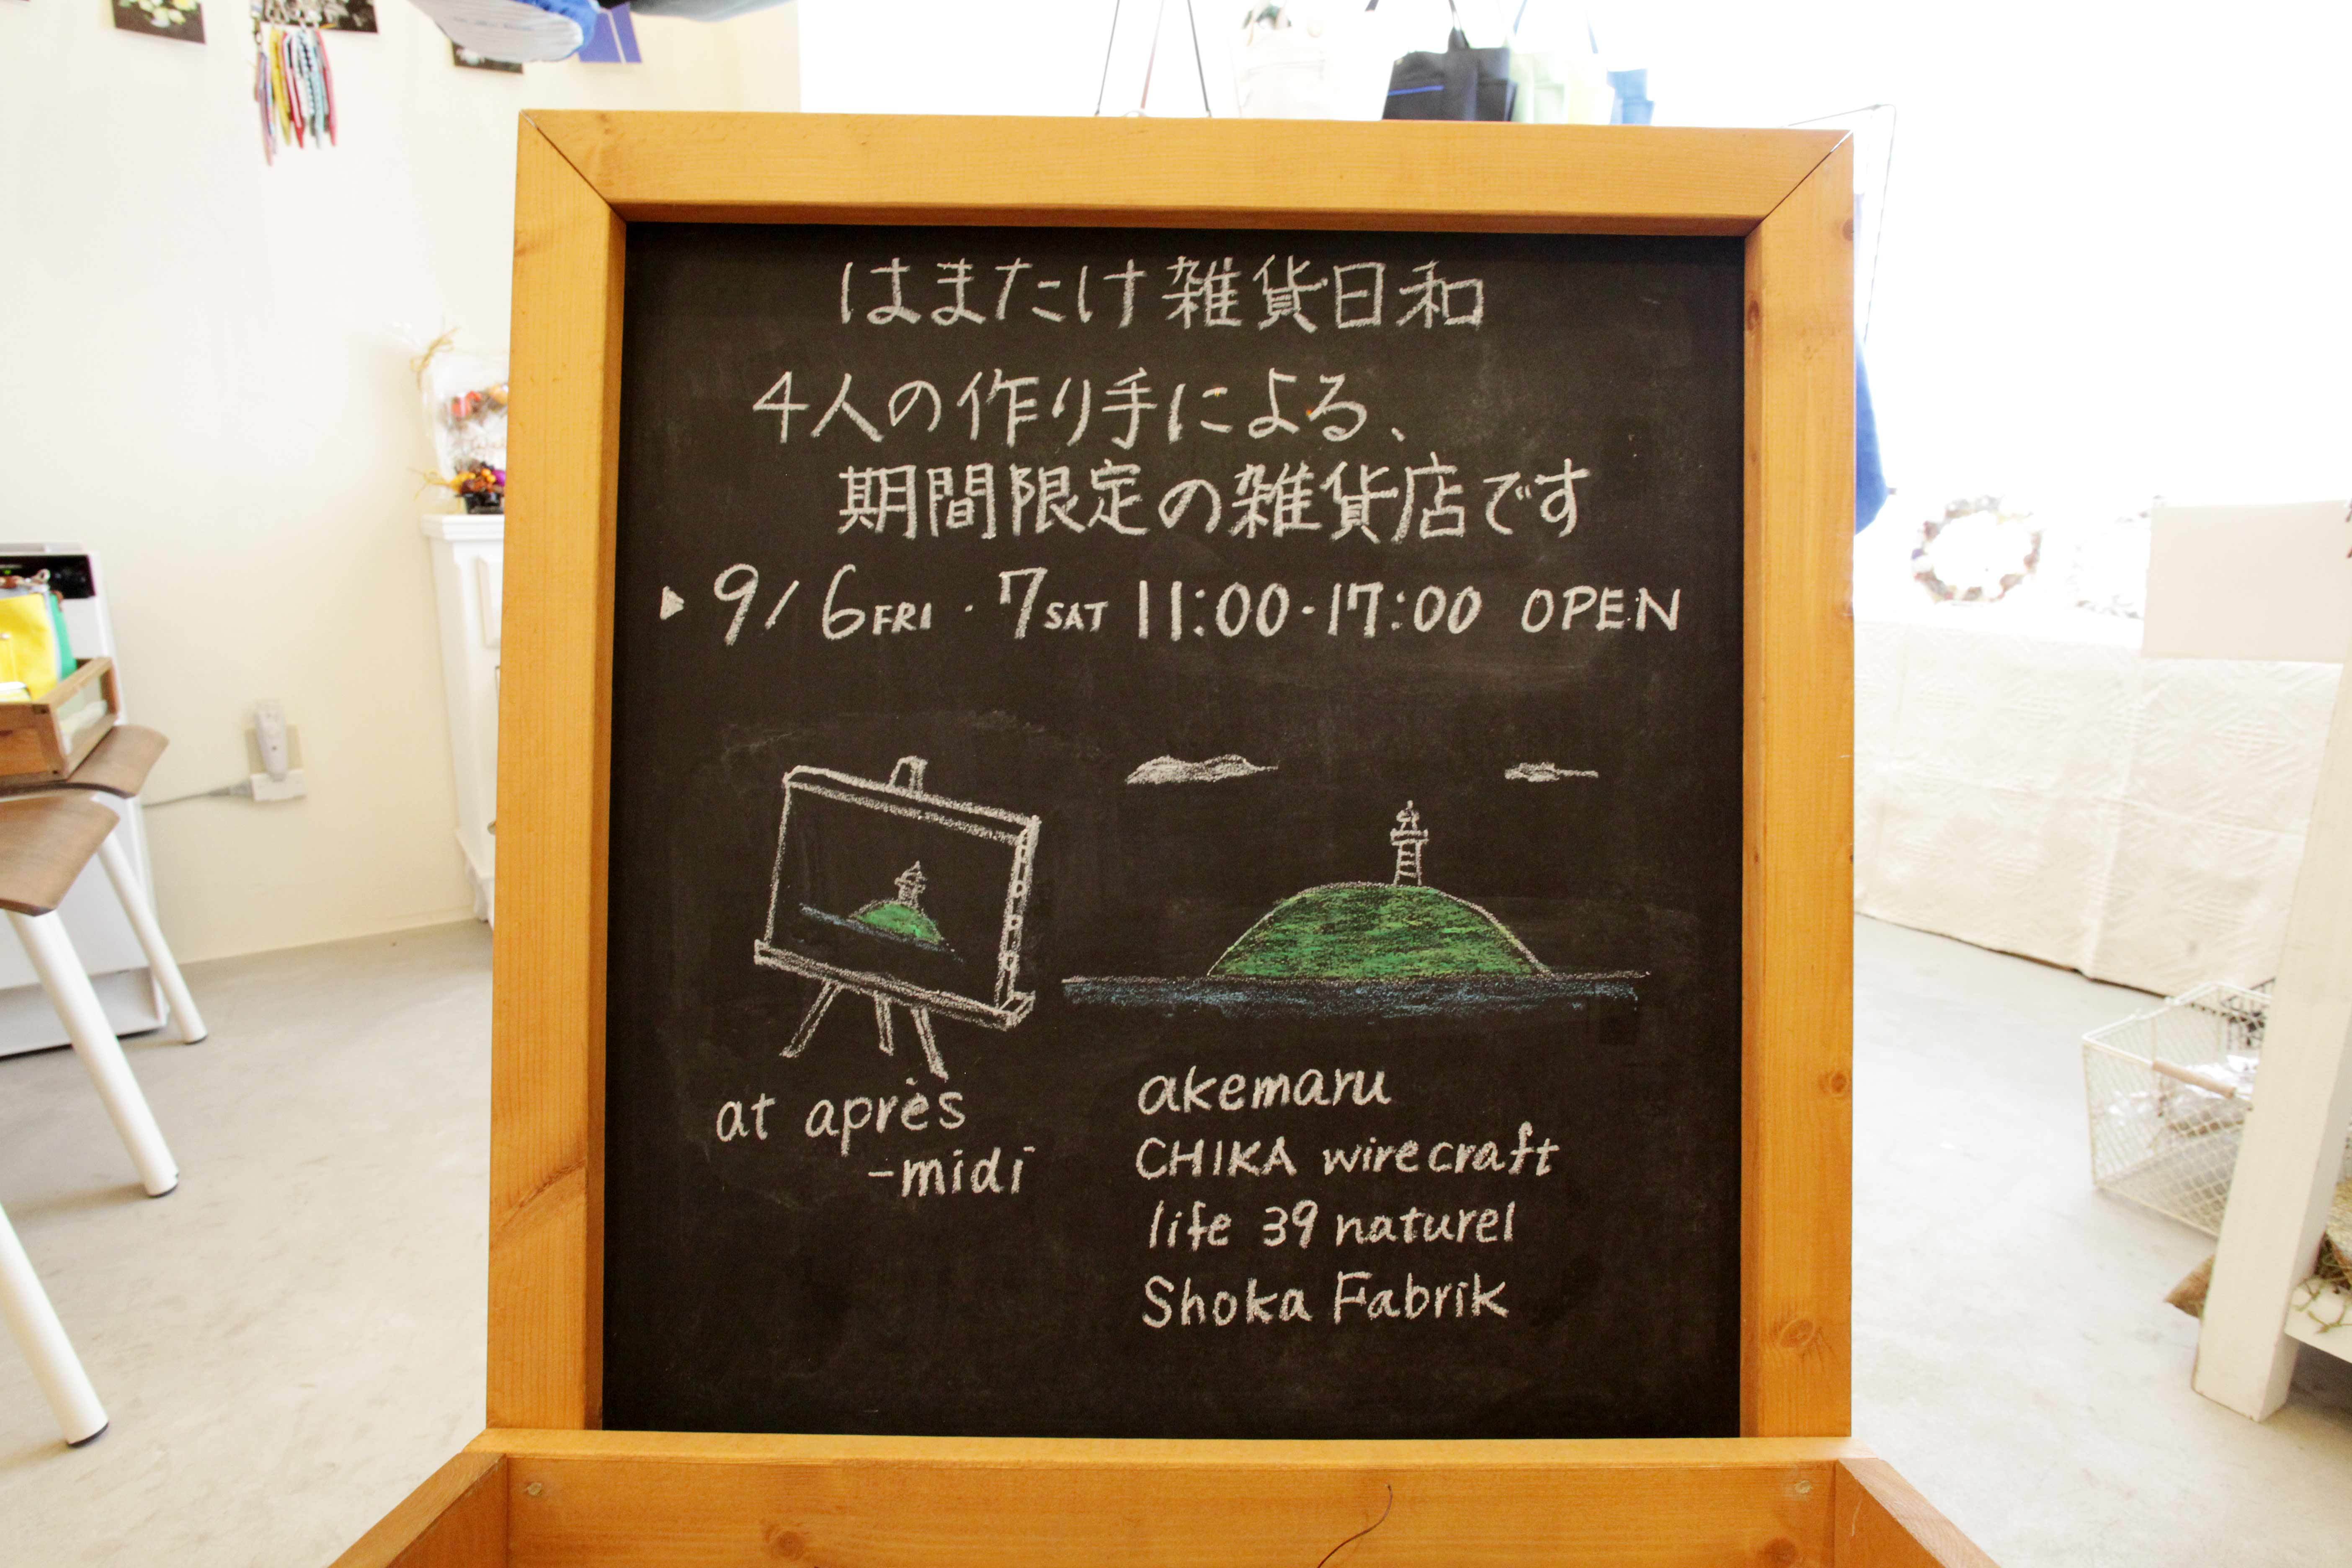 はまたけ雑貨日和
4人の作り手による、
期間限定の雑貨店です
▶ 9/6 FRI · 7 SAT 11:00-17:00 OPEN
at après
-midi
akemaru
CHIKA wirecraft
life 39 naturel
Shoka Fabrik